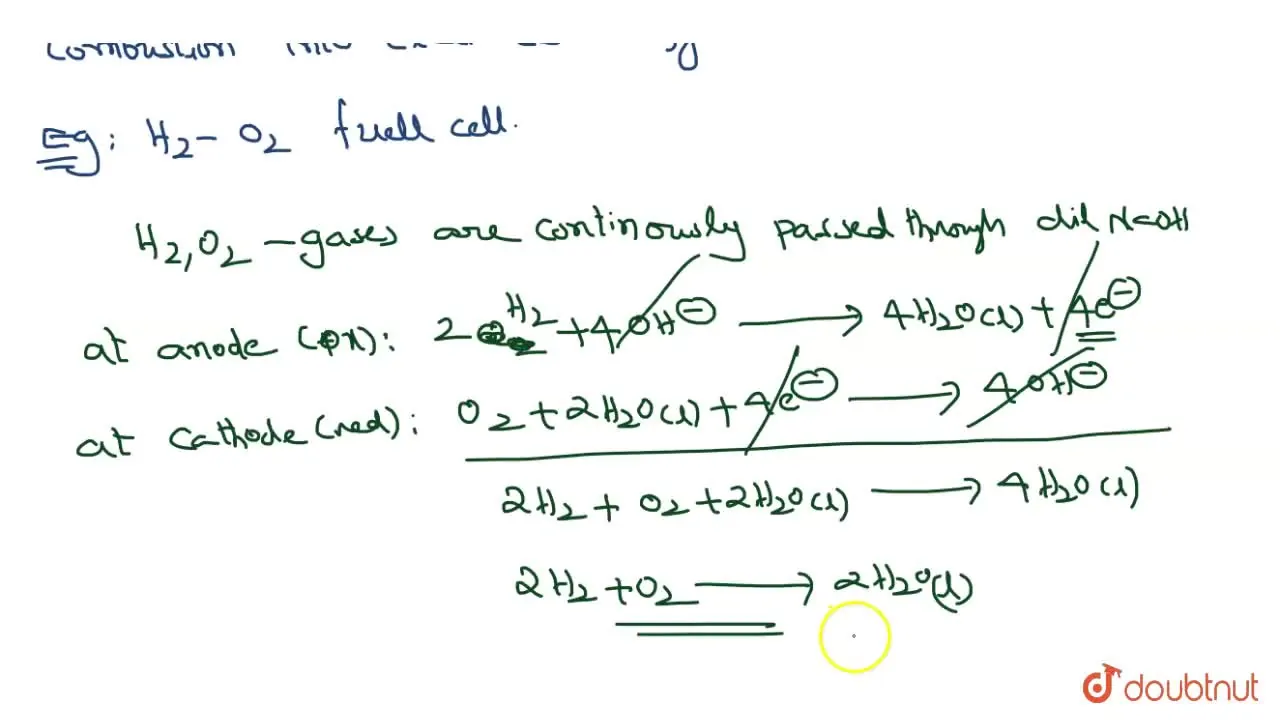 Eg: H2 - O2 fuell cell.
H2, O2 - gases are continously passed through dil NaOH
at anode (ox): 2H2 + 4OH⊖ → 4H2O(l) + 4e⊖
at cathode (red): O2 + 2H2O(l) + 4e⊖ → 4OH⊖
2H2 + O2 + 2H2O(l) → 4H2O(l)
2H2 + O2 → 2H2O(l)
doubtnut